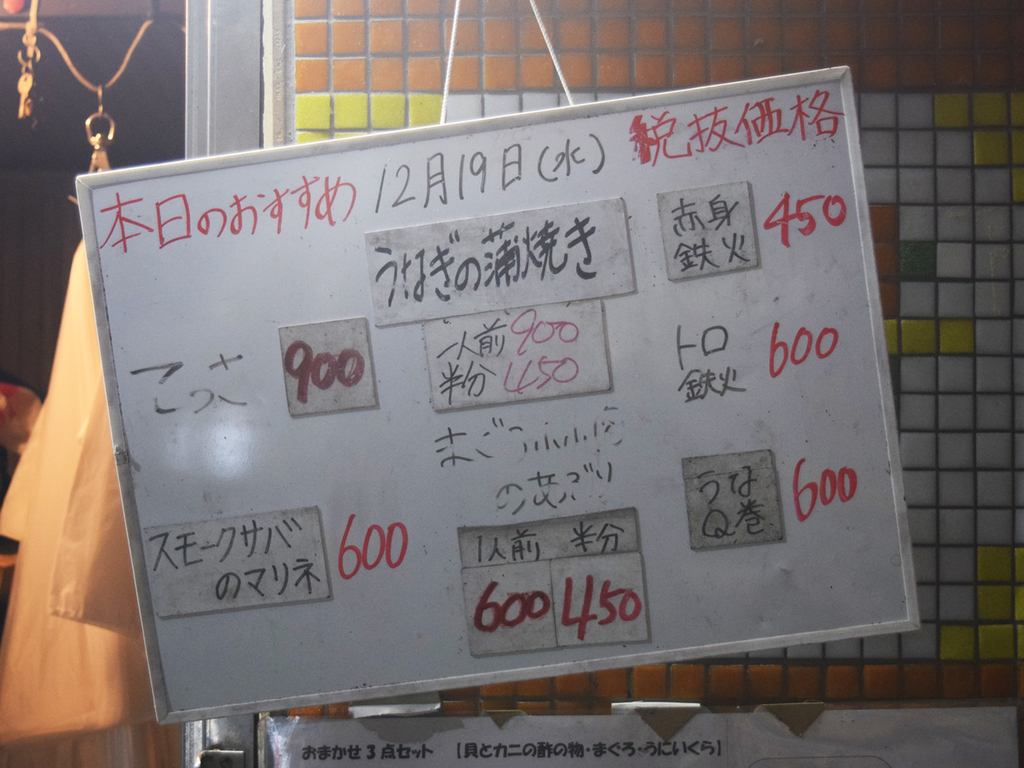 本日のおすすめ 12月19日(水) 税抜価格
うなぎの蒲焼き
一人前 900
半分 450
赤身
鉄火 450
900
トロ
鉄火 600
スモークサバ
のマリネ 600
1人前 半分
600 450
うな
Q巻 600
おまかせ3点セット 【貝とカニの酢の物・まぐろ・うにいくら】